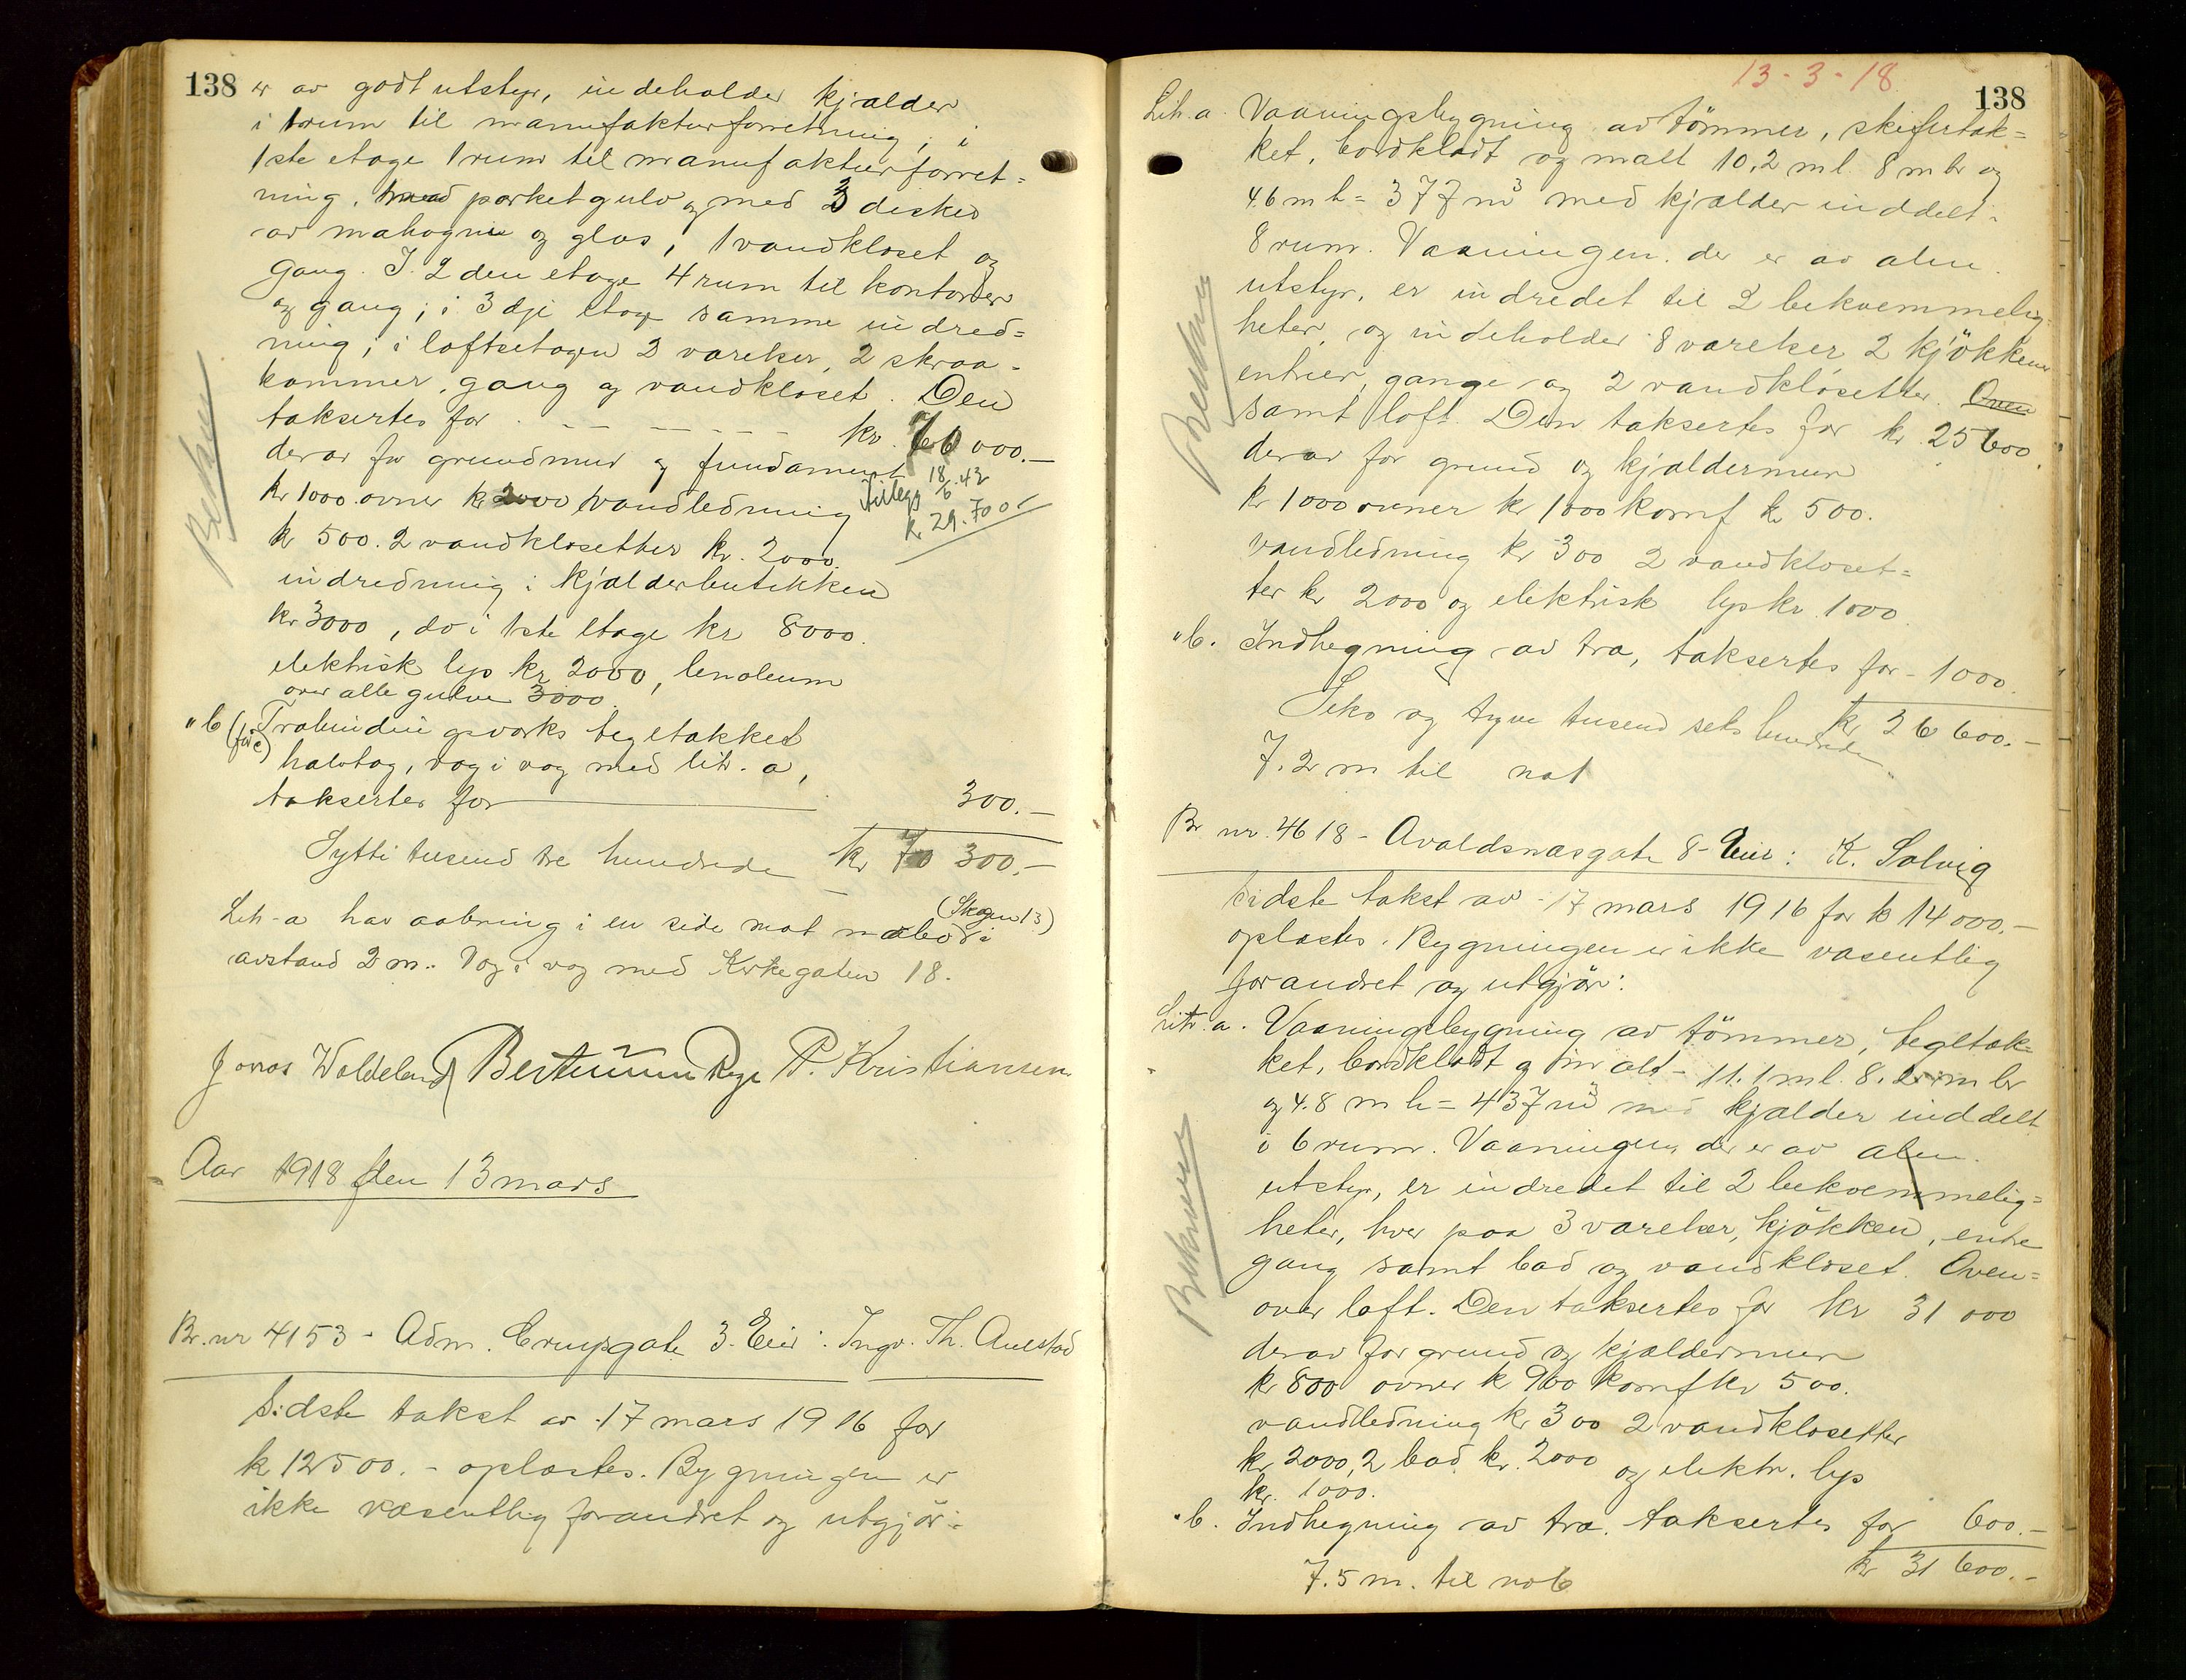 138
er av godt utstyr, indeholder kjælder
i 1 rum til manufakturforretning, i
1ste etage 1 rum til manufakturforret=
ning, med parketgulv og med 3 disker
av mahogni og glas, 1 vandkloset og
gang. I 2den etage 4 rum til kontorer
og gang; i 3dje etage samme indred=
ning; i loftsetagen 3 værelser, 2 skraa-
kammer, gang og vandkloset. Den
taksertes for - - - - - kr. 70 000.-
derav for grundmur og fundament
kr 1000 ovner kr 2000 vandledning
Tillegg 18/6.42
k 29.700
kr 500. 2 vandklosetter kr. 2000.
indredning i kjælderbutikken
kr 3000, do i 1ste etage kr 8000.
elektrisk lys kr 2000, lenoleum
over alle gulve 3000.
Beskm
"b (før c) Træbindingsverks tegltækket
halvtag, væg i væg med litr. a,
taksertes for 300.-
Sytti tusend tre hundrede kr 70 300.-
Litr. a har aabning i en side mot nabo i (Skagen 13)
avstand 2 m. Væg i væg med Kirkegaten 18.
Jonas Woldeland P. Kristiansen
Aar 1918 den 13 mars
Br. nr 4153 - Adm. Cruysgate 3. Eier: Ingv. Th. Aulstad
Sidste takst av 17 mars 1916 for
k 12500.- oplæstes. Bygningen er
ikke væsentlig forandret og utgjör:
13-3-18
138
Litr. a. Vaaningsbygning av tömmer, skifertæk=
ket, bordklædt og malt 10,2 m l. 8 m br og
4.6 m h = 377 m³ med kjælder inddelt i
8 rum. Vaaningen. der er av alm.
utstyr, er indredet til 2 bekvemmelig=
heter, og indeholder 8 værelser 2 kjökkener
entreer, gange og 2 vandklosetter. Oven
samt loft. Den taksertes for kr 25600.
derav for grund og kjældermur
kr 1000 ovner kr 1000 komf k 500.
vandledning kr 300 2 vandkloset=
ter kr 2000 og elektrisk lys kr. 1000.
"b. Indhegning av træ, taksertes for - 1000.
kr 26 600.-
Seks og tyve tusend seks hundrede
7.2 m til nab
Br nr. 4618 - Avaldsnæsgate 8 - Eier: K. Solvig
Sidste takst av 17 mars 1916 for k 14 000.-
oplæstes. Bygningen er ikke væsentlig
forandret og utgjör:
Litr. a. Vaaningsbygning av tömmer, tegltæk=
ket, bordklædt og malt - 11.1 m l. 8.2 m br
og 4.8 m h = 437 m³ med kjælder inddelt
i 6 rum. Vaaningen, der er av alm.
utstyr, er indredet til 2 bekvemmelig=
heter, hver paa 3 værelser, kjökken, entre
gang samt bad og vandkloset. Oven=
over loft. Den taksertes for kr 31 000
derav for grund og kjældermur
k 800 ovner k 900 komf kr 500.
vandledning kr 300 2 vandklosetter
kr 2000, 2 bad kr. 2000 og elektr. lys
kr. 1000.
"b. Indhegning av træ. taksertes for 600.-
kr 31 600.-
7.5 m. til nab